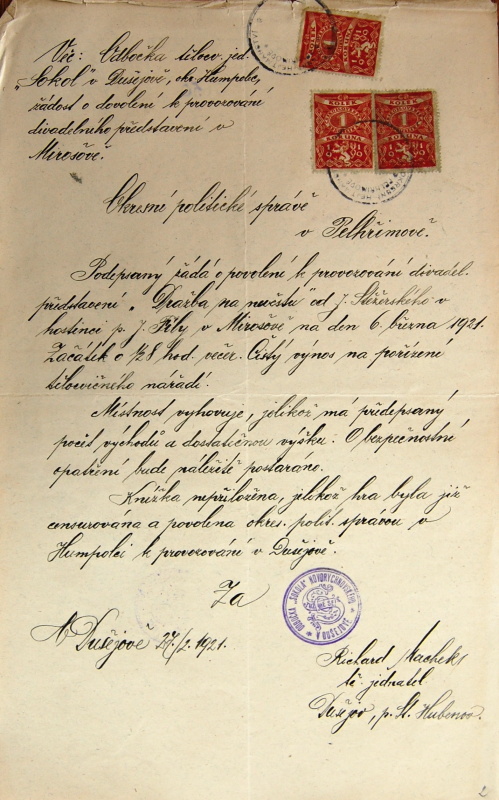 Věc: Odbočka tělocv. jed.
„Sokol" v Dušejově, okr. Humpolec,
žádost o dovolení k provozování
divadelního představení v
Mirošově.
KOLEK
1
KORUNA
KOLEK
1
KORUNA
KOLEK
1
KORUNA
Okresní politické správě
v Pelhřimově.
Podepsaný žádá o povolení k provozování divadel.
představení „Dražba na nečisto" od J. Stěžerského v
hostinci p. J. v Mirošově na den 6. března 1921.
Začátek o ½8 hod. večer. Čistý výnos na pořízení
tělocvičného nářadí.
Místnost vyhovuje, jelikož má předepsaný
počet východů a dostatečnou výšku. O bezpečnostní
opatření bude náležitě postaráno.
Knížka nepřiložena, jelikož hra byla již
censurována a povolena okres. polit. správou v
Humpolci k provozování v Dušejově.
Za
ODBOČKA „SOKOLA" NOVORYCHNOVSKÉHO
V DUŠEJOVĚ
V Dušejově 27./2. 1921.
Richard
tč. jednatel
Dušejov, p. St. Hubenov.
2